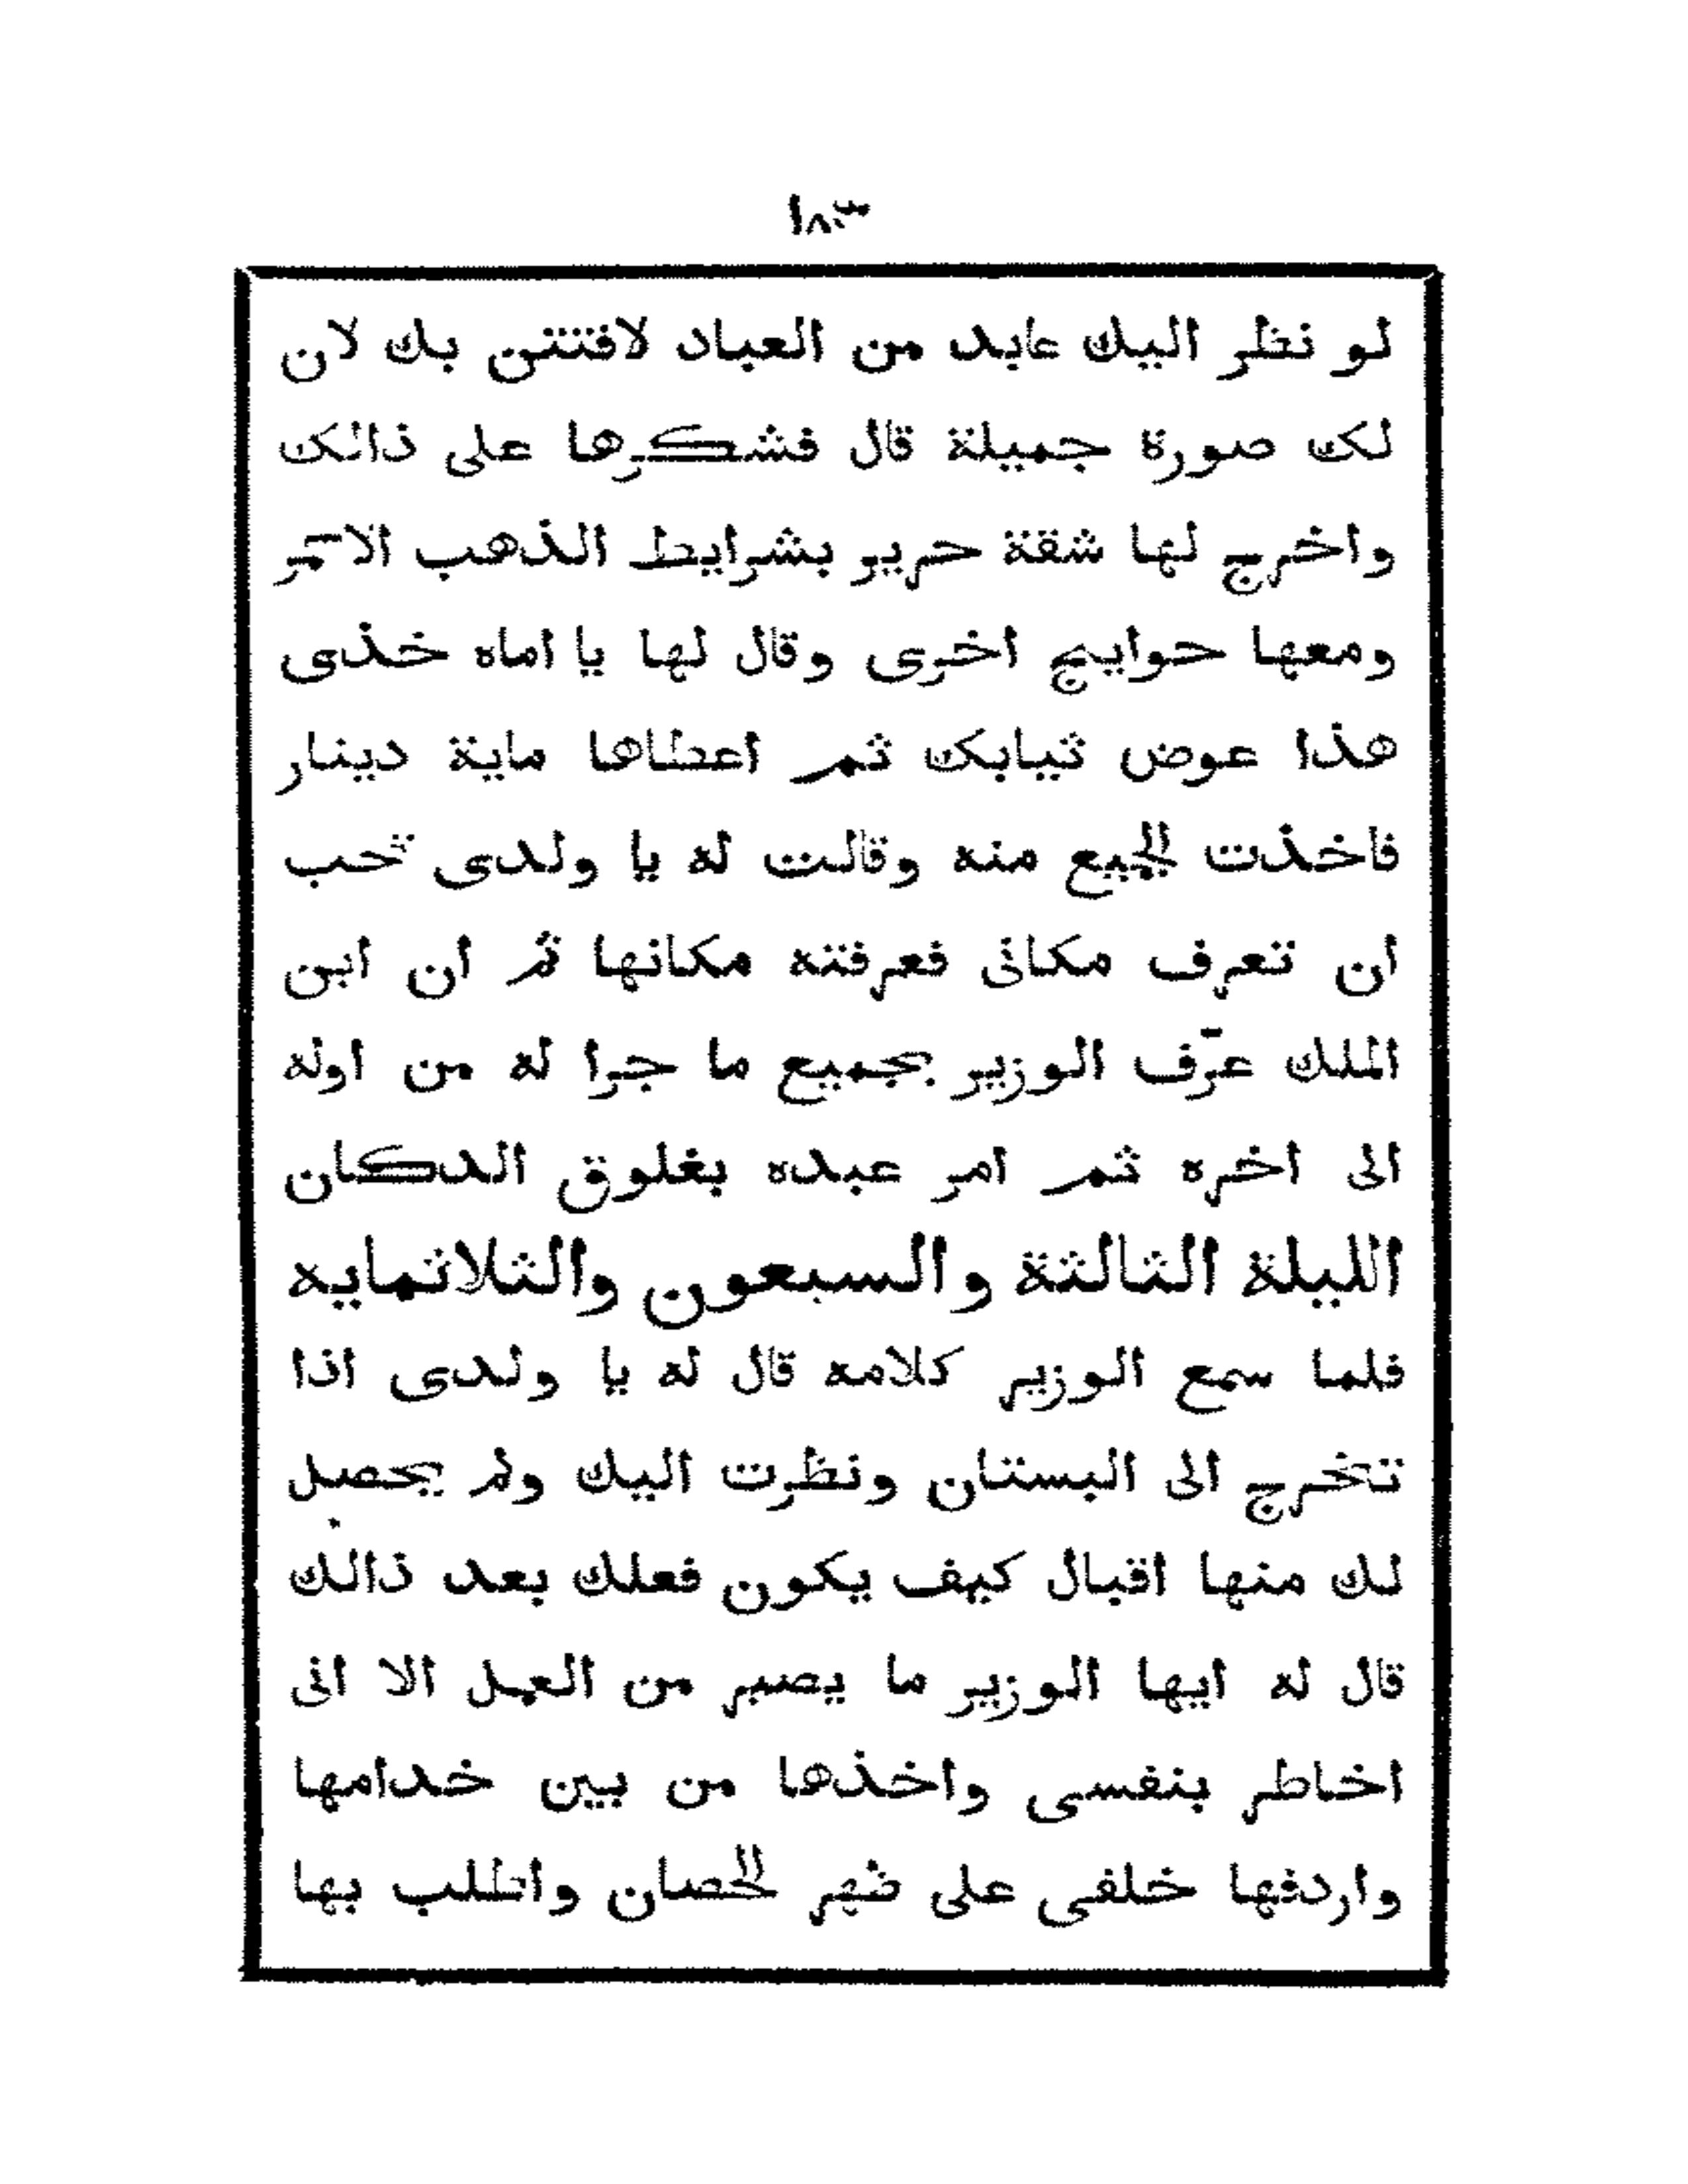 ١٨٣
لو نظر اليك عابد من العباد لافتتن بك لان
لك صورة جميلة قال فشكرها على ذالك
واخرج لها شقة حرير بشرايط الذهب الاحمر
ومعها حوايج اخرى وقال لها يا اماه خذى
هذا عوض ثيابك ثم اعطاها ماية دينار
فاخذت الجميع منه وقالت له يا ولدى تحب
ان تعرف مكانى فعرفته مكانها ثم ان ابن
الملك عرّف الوزير بجميع ما جرا له من اوله
الى اخره ثم امر عبده بغلوق الدكان
الليلة الثالثة والسبعون والثلاثمايه
فلما سمع الوزير كلامه قال له يا ولدى اذا
تخرج الى البستان ونظرت اليك ولم يحصل
لك منها اقبال كيف يكون فعلك بعد ذالك
قال له ايها الوزير ما يصير من العمل الا انى
اخاطر بنفسى واخذها من بين خدامها
واردفها خلفى على ضهر الحصان واطلب بها